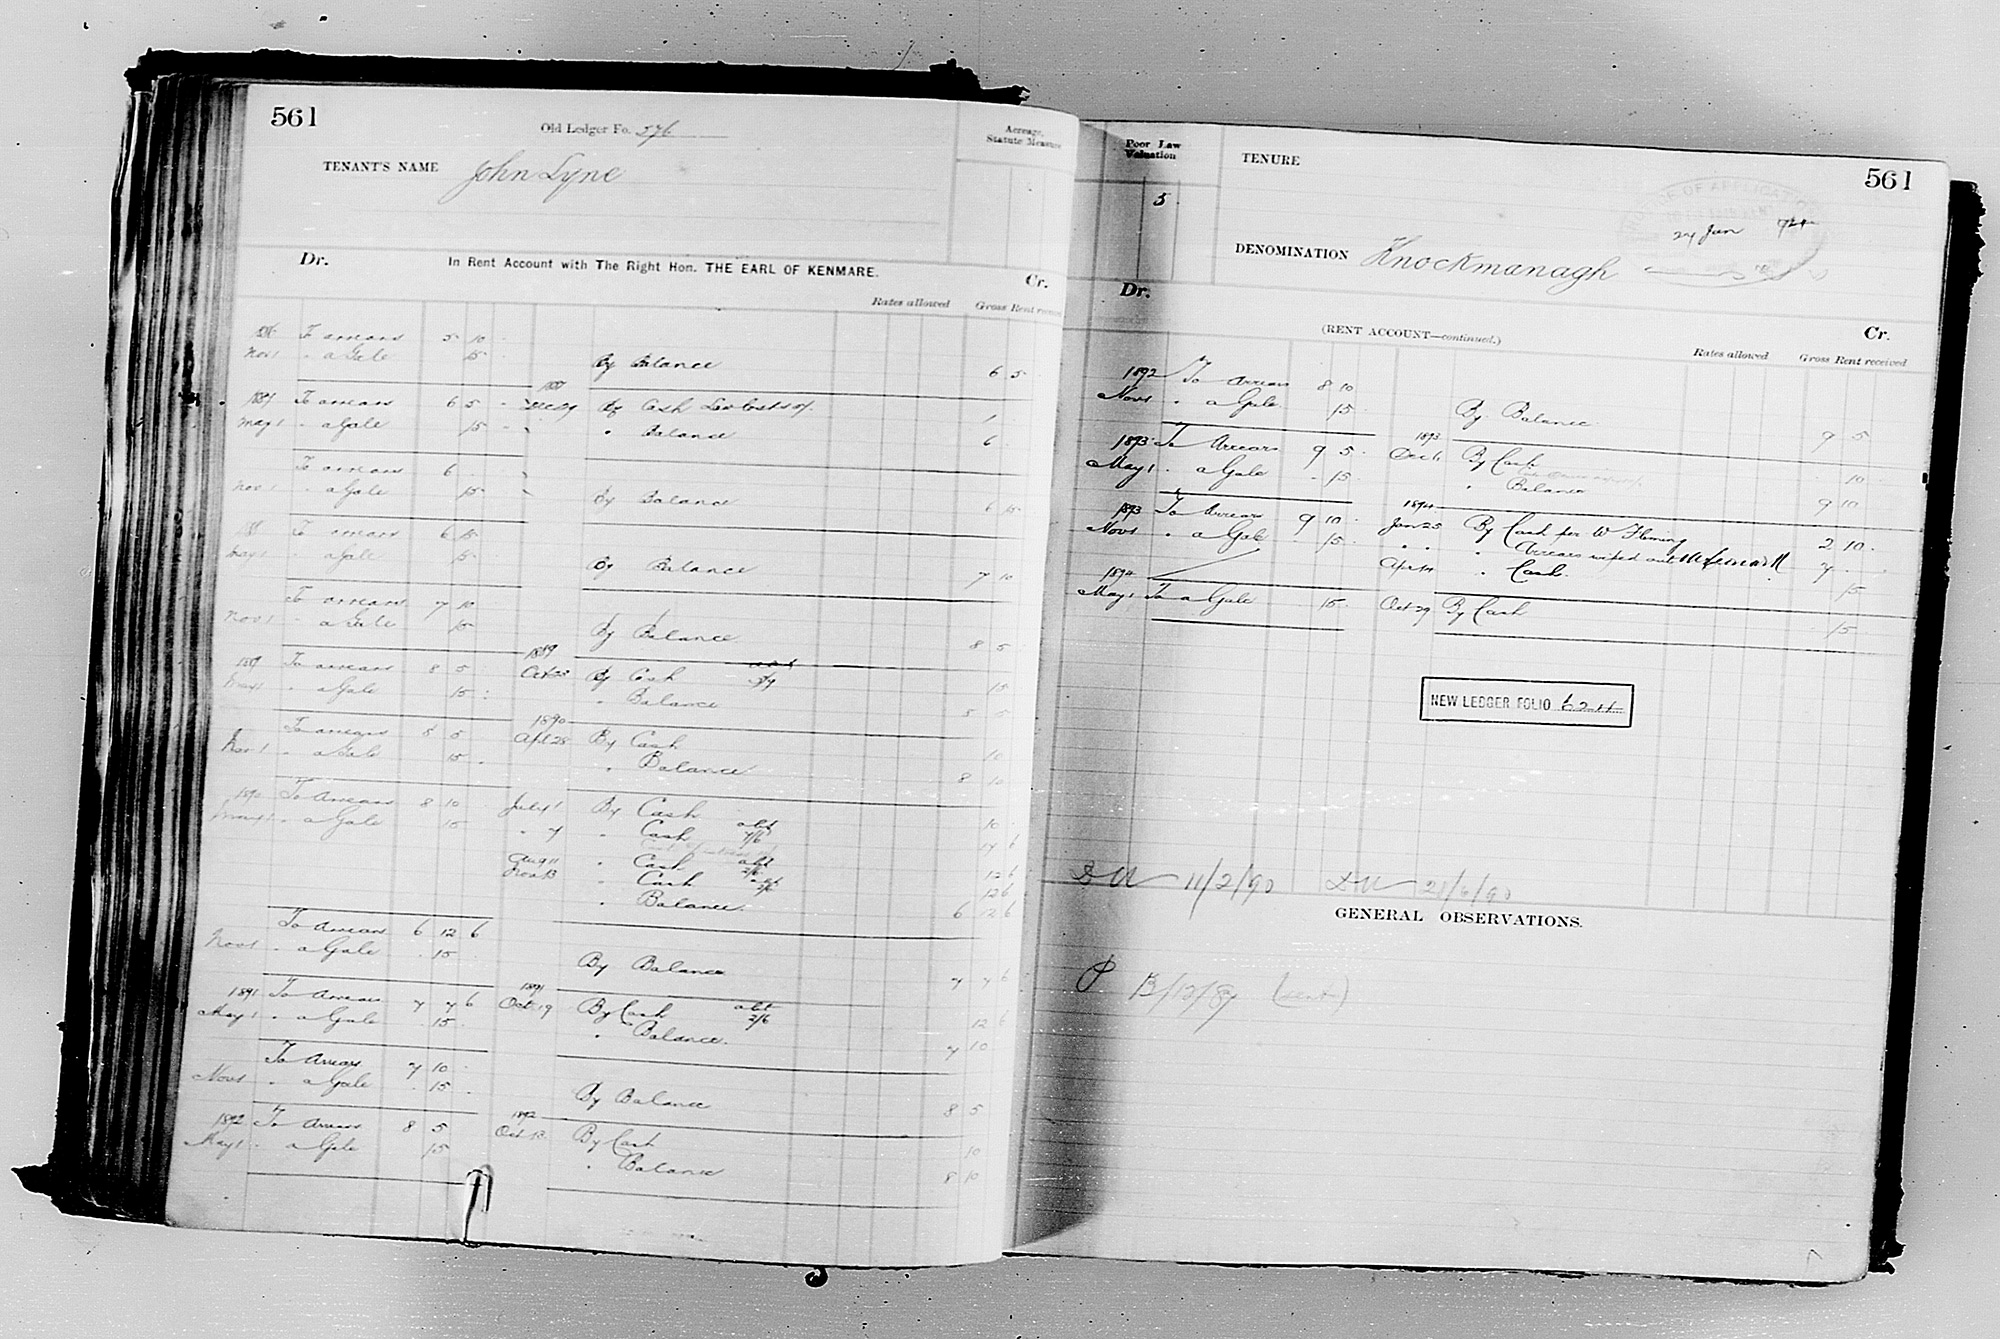 561
Old Ledger Fo. 576
Acreage, Statute Measure
TENANT'S NAME John Lyne
Dr. In Rent Account with The Right Hon. THE EARL OF KENMARE. Cr.
Rates allowed Gross Rent received
1886 To arrears 5 10
Nov 1 " a Gale 15
By Balance 6 5
1887 To arrears 6 5 1887 Dec 29 By Cash 1
May 1 " a Gale 15 " Balance 6
To arrears 6
Nov 1 " a Gale 15 By Balance 6 15
188 To arrears 6 15
May 1 " a Gale 15 By Balance 7 10
To arrears 7 10
Nov 1 " a Gale 15 By Balance 8 5
1889
1889 To arrears 8 5 Oct 23 By Cash 15
May 1 " a Gale 15 " Balance 5
1890
To arrears 8 5 Apl 28 By Cash 10
Nov 1 " a Gale 15 " Balance 8 10
1890 To Arrears 8 10 July 1 By Cash 10
May 1 " a Gale 15 " 7 " Cash abt 7/6 17 6
Aug 11 " Cash abt 2/6 12 6
Nov 13 " Cash abt 2/6 12 6
" Balance 6 12 6
To Arrears 6 12 6
Nov 1 " a Gale 15 By Balance 7 7 6
1891
1891 To Arrears 7 7 6 Oct 19 By Cash abt 2/6 12 6
May 1 " a Gale 15 " Balance 7 10
To Arrears 7 10
Nov 1 " a Gale 15 By Balance 8 5
1892
1892 To Arrears 8 5 Oct 13 By Cash 10
May 1 " a Gale 15 " Balance 8 10
Poor Law Valuation
5
TENURE
561
24 Jan
DENOMINATION Knockmanagh
Dr. (RENT ACCOUNT—continued.) Cr.
Rates allowed Gross Rent received
1892 To Arrears 8 10
Nov 1 " a Gale 15 By Balance 9 5
1893
1893 To Arrears 9 5 Dec 11 By Cash 10
May 1 " a Gale 15 " Balance 9 10
1894
1893 To Arrears 9 10 Jan 25 By Cash per W Fleming 2 10
Nov 1 " a Gale 15 " " " Arrears wiped out 7
Apr 14 " Cash 15
1894
May 1 To a Gale 15 Oct 29 By Cash 15
NEW LEDGER FOLIO 624
11/2/90 21/6/90
GENERAL OBSERVATIONS.
P 13/12/87 (sent)